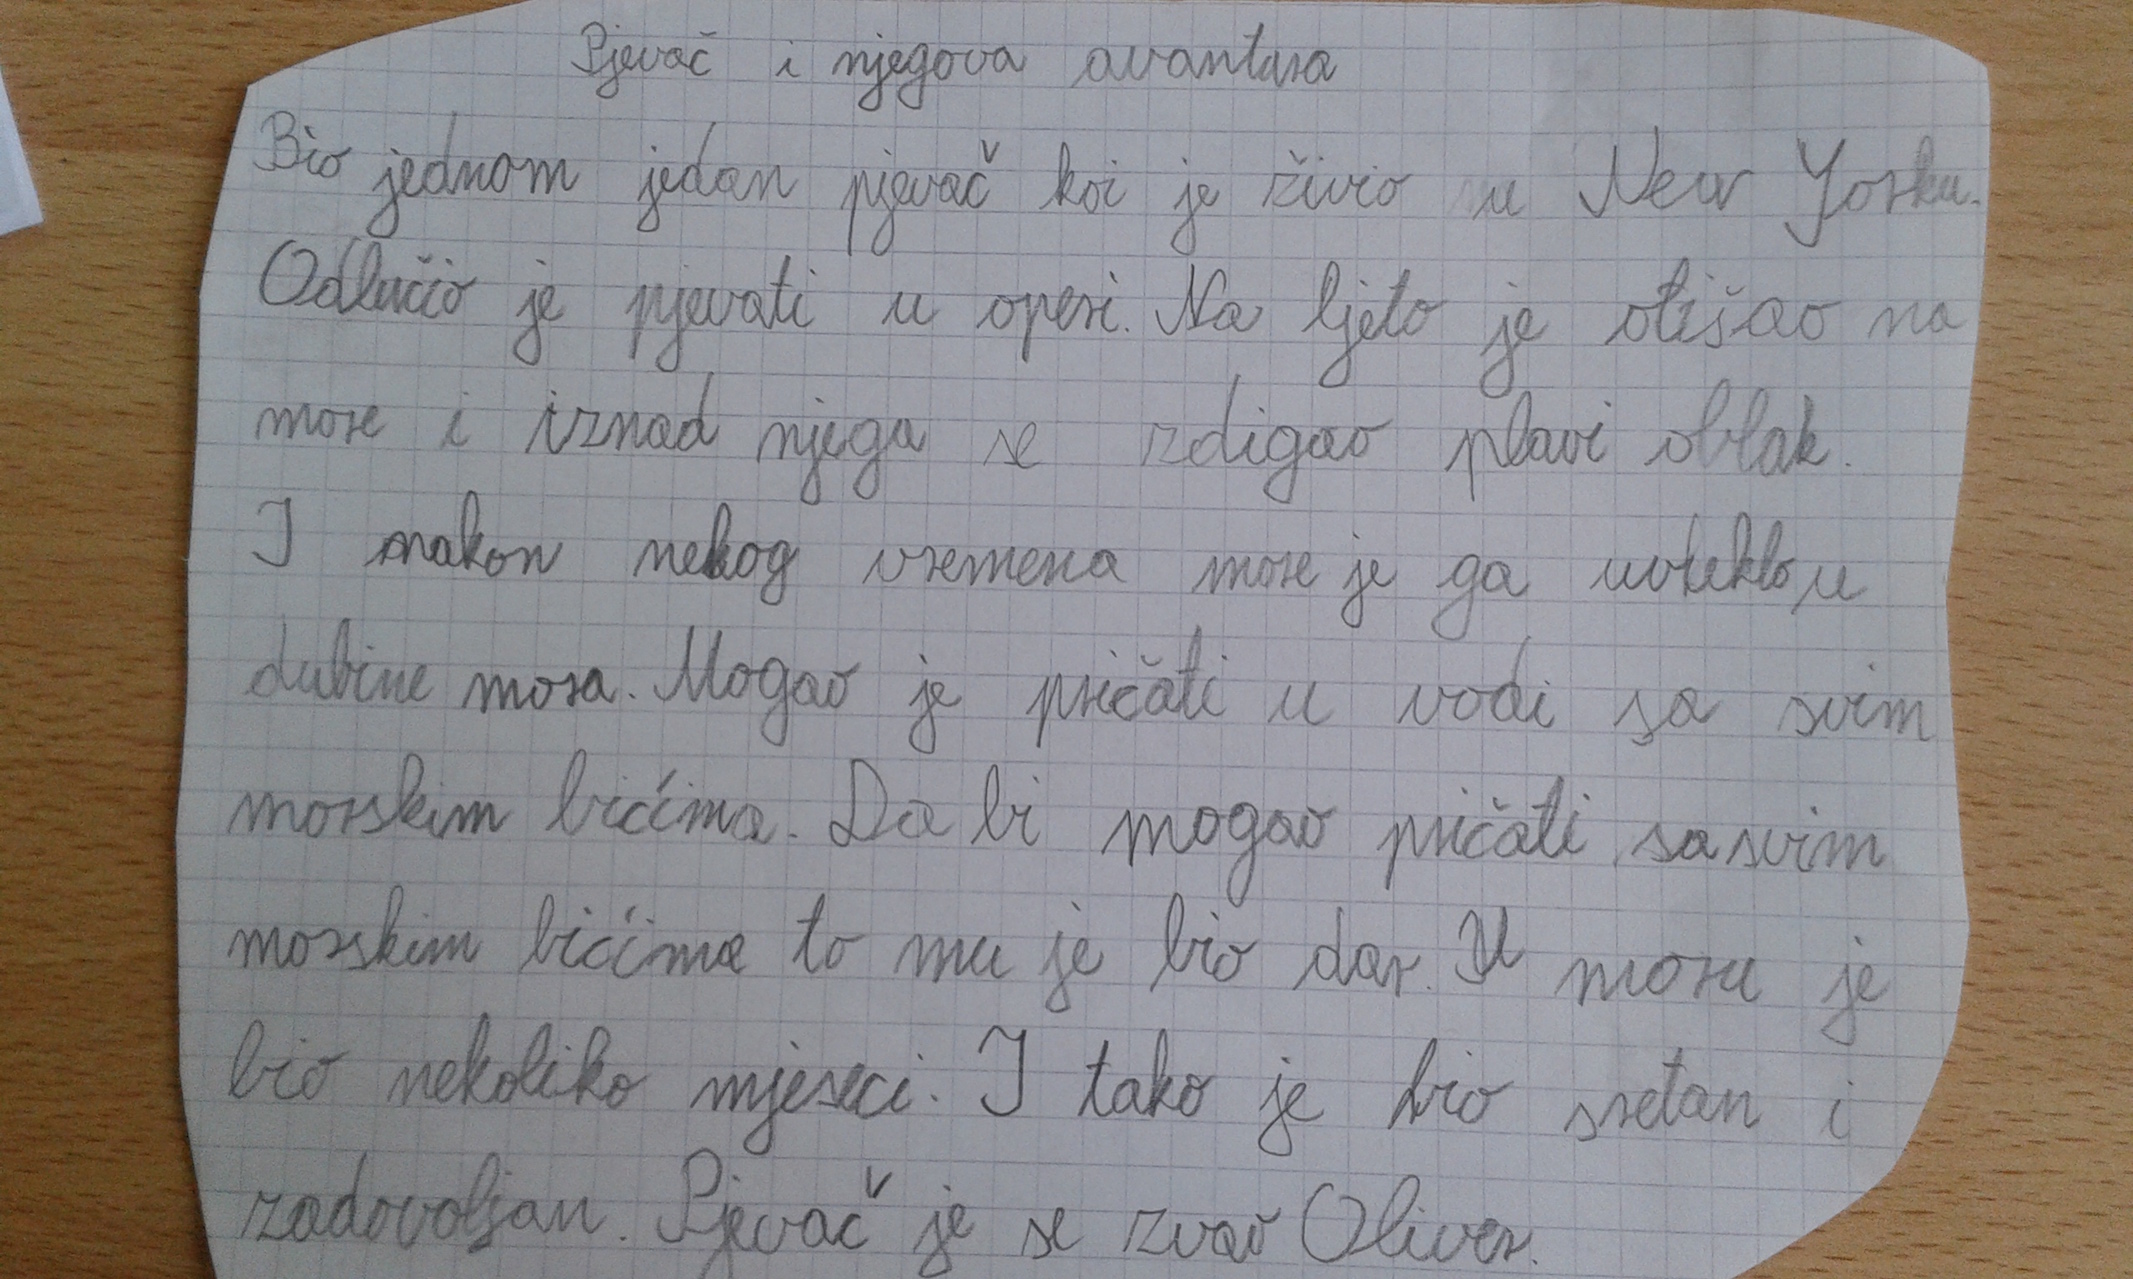 Pjevač i njegova avantura
Bio jednom jedan pjevač koi je živio u New Yorku.
Odlučio je pjevati u operi. Na ljeto je otišao na
more i iznad njega se zdigao plavi oblak.
I nakon nekog vremena more je ga uvleklo u
dubine mora. Mogao je pričati u vodi sa svim
morskim bićima. Da bi mogao pričati sa svim
morskim bićima to mu je bio dar. U moru je
bio nekoliko mjeseci. I tako je bio sretan i
zadovoljan. Pjevač je se zvao Oliver.